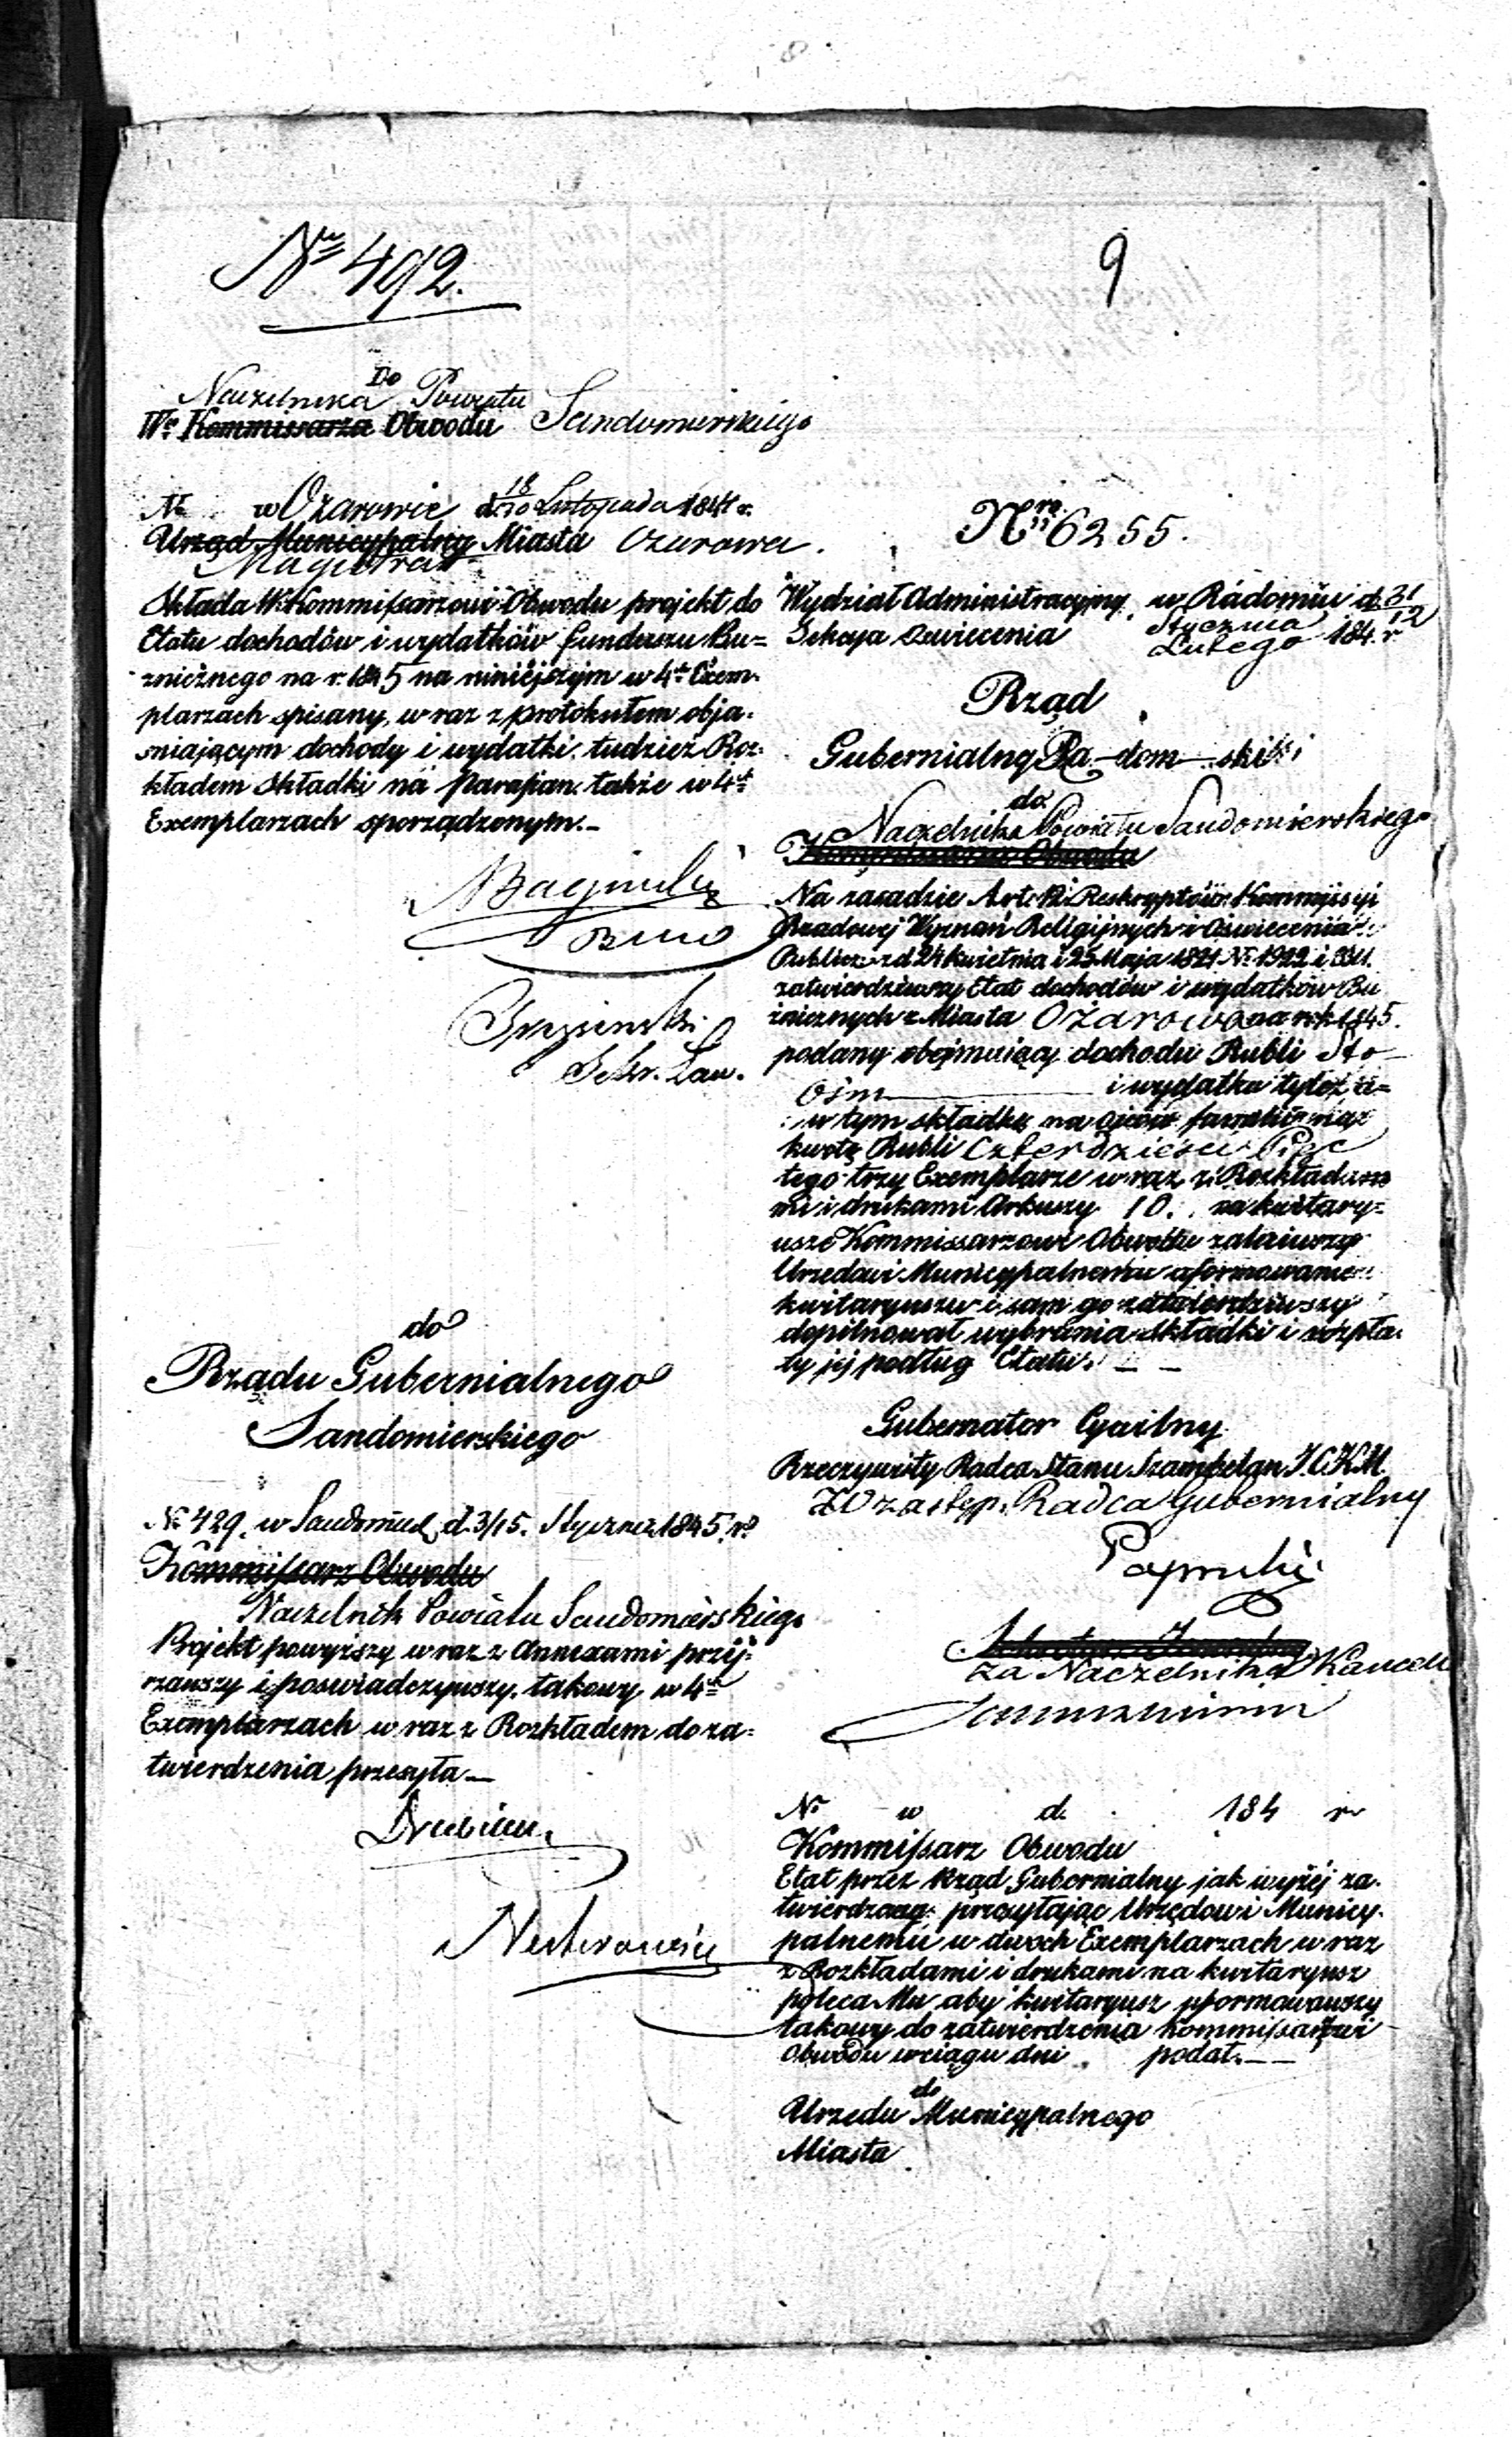 9
Nro 492.
Do
Naczelnika Powiatu
Wo Kommissarza Obwodu Sandomierskiego
No w Ożarowie d. 18 Listopada 1844 r.
Urząd Municypalny Miasta Ożarowa.
Magistrat
Składa W. Kommissarzowi Obwodu projekt do
Etatu dochodów i wydatków funduszu Bu=
żnicznego na r. 1845 na niniejszym w 4ch Exem-
plarzach spisany, wraz z protokułem obja-
śniającym dochody i wydatki, tudzież Roz-
kładem Składki na Parafian. także w 4ch
Exemplarzach sporządzonym.—
do
Rządu Gubernialnego
Sandomierskiego
No 429. w Sandomie d. 3/15. Stycznia 1845 r.
Kommissarz Obwodu
Naczelnik Powiatu Sandomierskiego
Projekt powyższy wraz z Annexami przéj-
rzawszy i poświadczywszy, takowy w 4ch
Exemplarzach wraz z Rozkładem do za=
twierdzenia przesyła—
Nro 6255.
Wydział Administracyjny w Radomiu d. 31/12
Sekcya Oświecenia Stycznia Lutego 184. r
Rząd
Gubernialny Ra-dom-ski
do
Naczelnika Powiatu Sandomierskiego
Kommissarza Obwodu
Na zasadzie Art. 12. Reskryptów Kommissyi
Rządowej Wyznań Religijnych i Oświecenia
Public. z d. 24 Kwietnia i 25 Maja 1821 No 1922 i
zatwierdziwszy Etat dochodów i wydatków Bu
żnicznych z Miasta Ożarowa na rok 1845.
podany obejmujący dochodu Rubli Sto
Ośm i wydatku tyleż a=
w tym składkę na Ojców familii na
kwotę Rubli Czterdzieści Pięć
tego trzy Exemplarze wraz z Rozkłada
mi i drukami Arkuszy 10. na kwitary=
usze Kommissarzowi Obwodu
Urzędowi Municypalnemu uformowanie
kwitaryuszu i sam go zatwierdziwszy
dopilnował wybrania składki i rozpła-
ty jéj podług Etatu. — —
Gubernator Cywilny
Rzeczywisty Radca Stanu Szambelan J.C.K.M.
W zastęp. Radca Gubernialny
Za Naczelnika Kancell
No w d. 184 r.
Kommissarz Obwodu
Etat przez Rząd Gubernialny jak wyżéj za-
twierdzony, przesyłając Urzędowi Municy-
palnemu w dwóch Exemplarzach wraz
z Rozkładami i drukami na kwitaryusz
poleca Mu aby kwitaryusz uformowawszy
takowy do zatwierdzenia Kommissarzowi
Obwodu w ciągu dni podał.——
do
Urzędu Municypalnego
Miasta